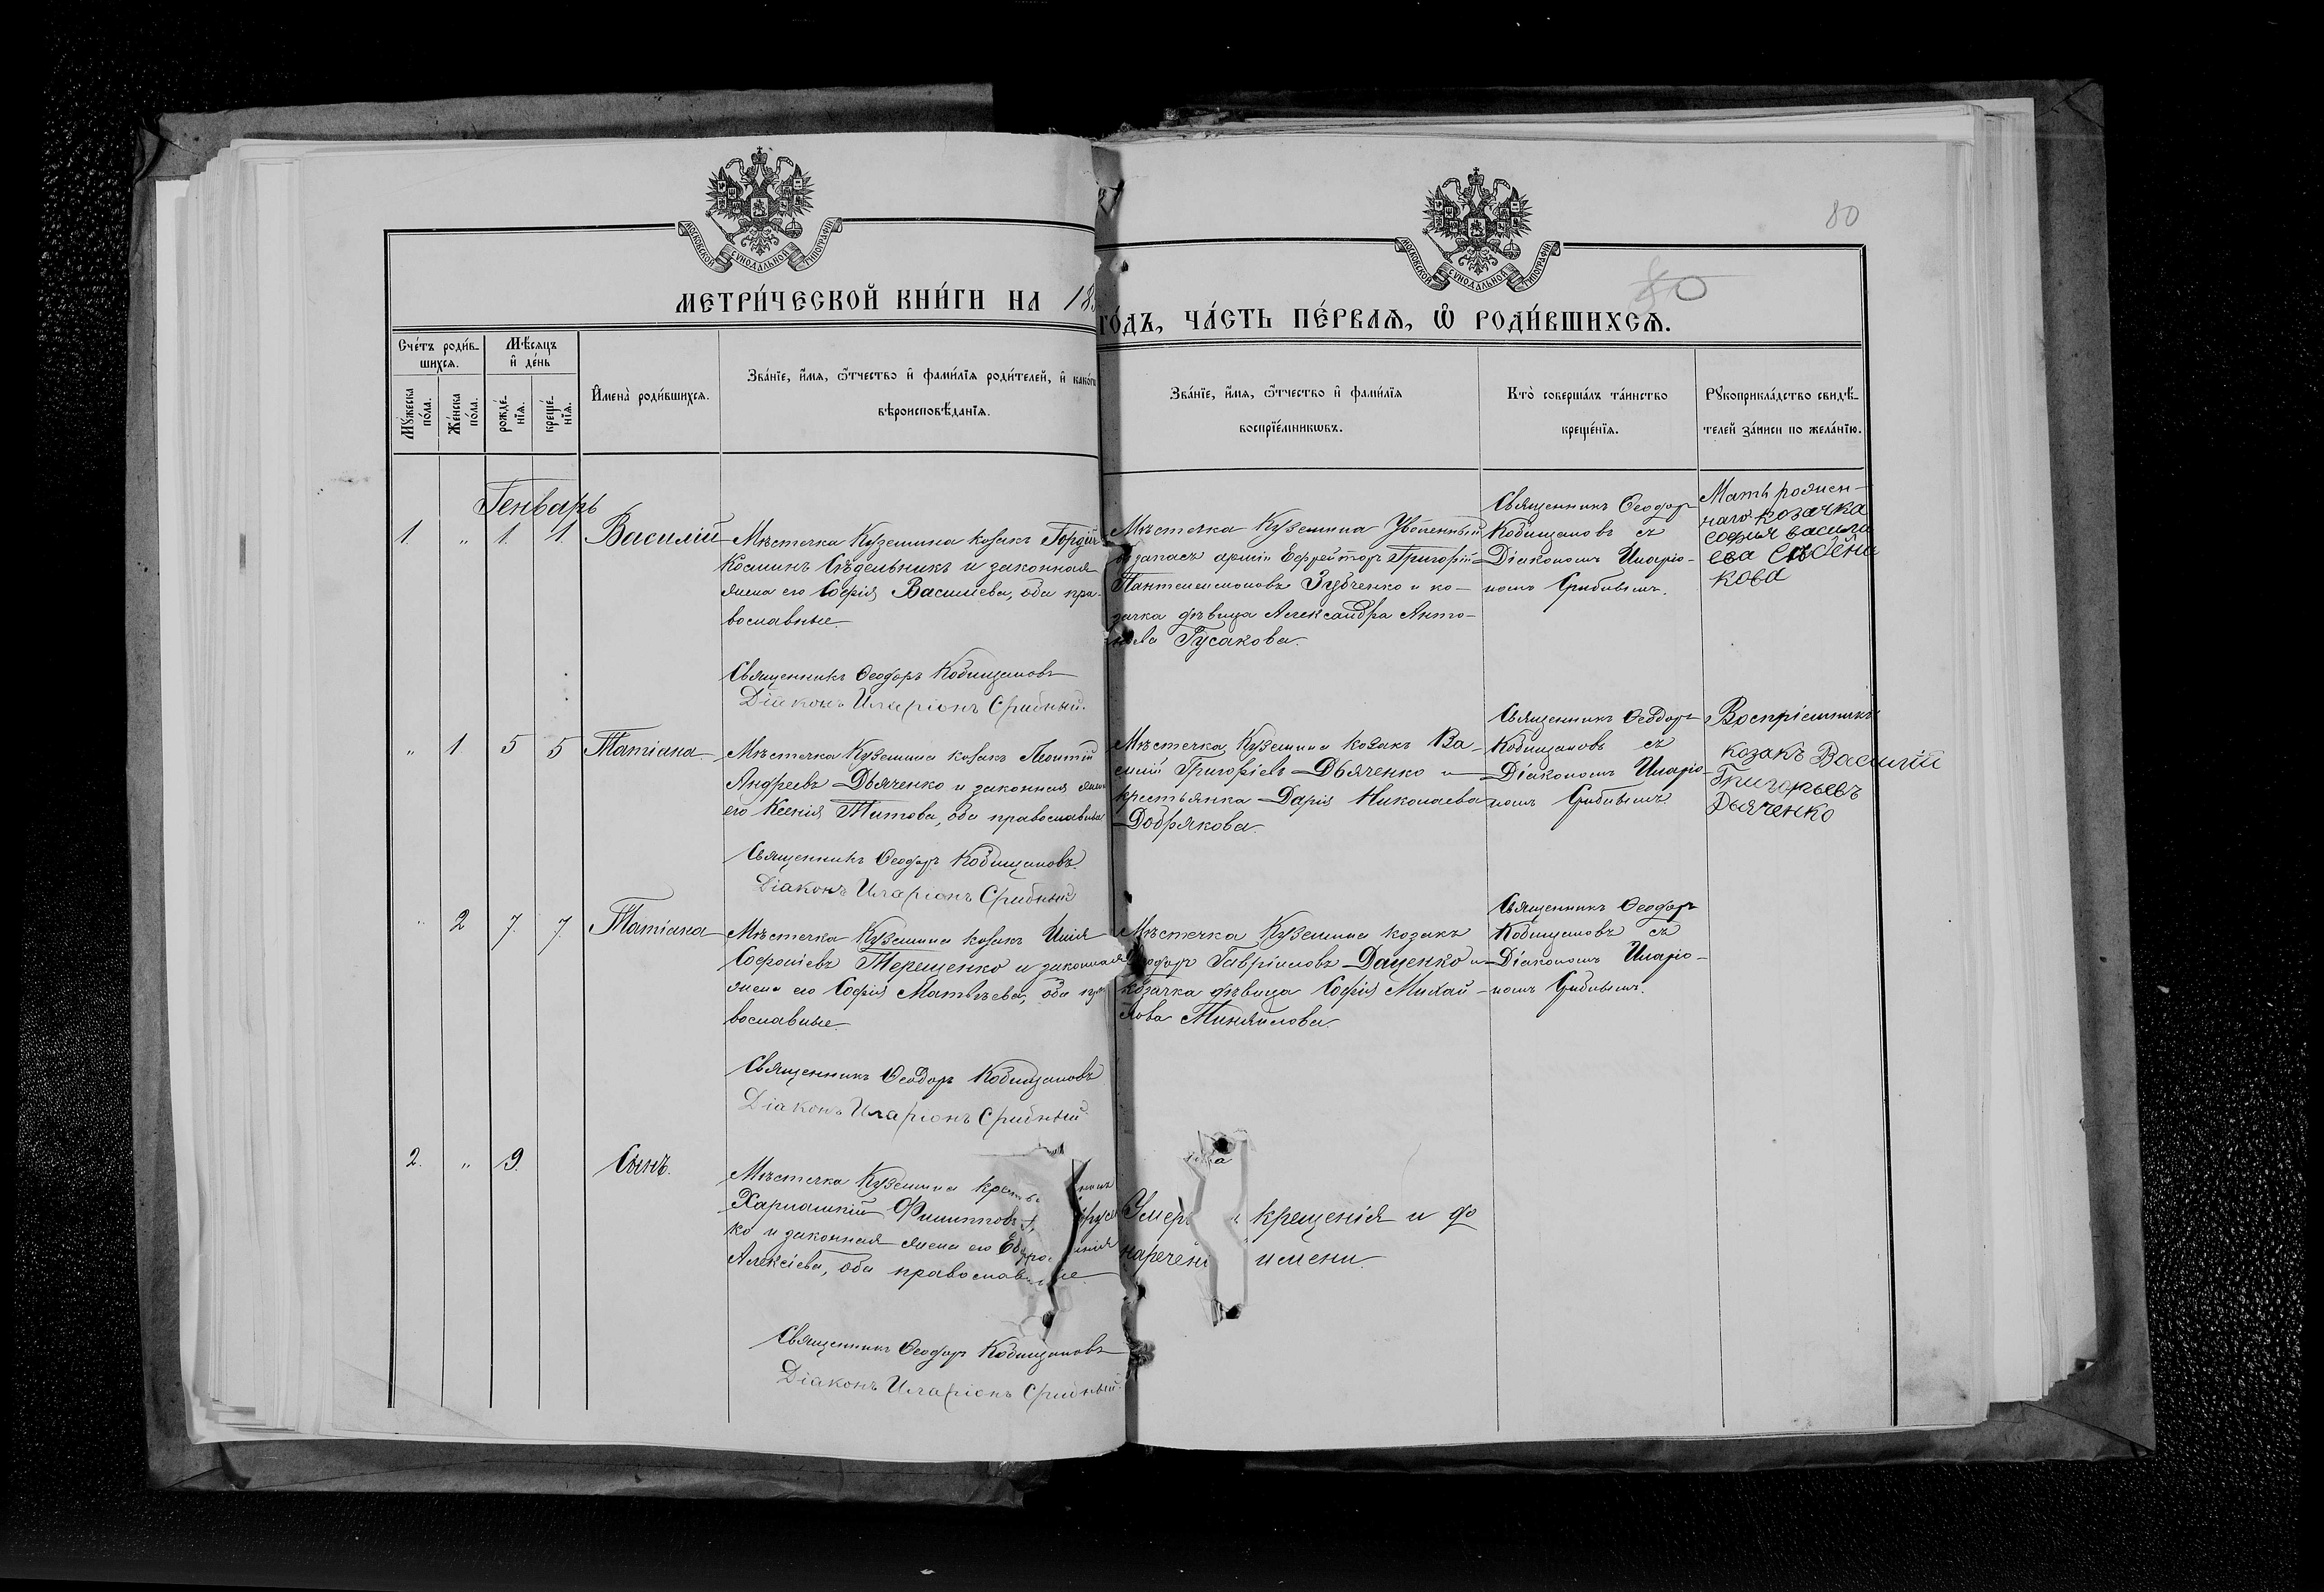 80
МОСКОВСКОЙ СУНОДАЛЬНОЙ ТИПОГРАФІИ
МОСКОВСКОЙ СУНОДАЛЬНОЙ ТИПОГРАФІИ
80
МЕТРИ́ЧЕСКОЙ КНИ́ГИ НА 18
ГО́ДЪ, ЧА́СТЬ ПЕ́РВАѦ, Ѡ҆ РОДИ́ВШИХСѦ.
Сче́тъ роди́в-
шихсѧ.
Мѣ́сѧцъ
и҆ де́нь
Мꙋ́жеска
по́ла.
Же́нска
по́ла.
рожде́-
нїѧ.
креще́-
нїѧ.
И҆мена̀ роди́вшихсѧ.
Зва́нїе, и҆́мѧ, ѻ҆́тчество и҆ фами́лїѧ роди́телей, и҆ како́гѡ
вѣроисповѣ́данїѧ.
Зва́нїе, и҆́мѧ, ѻ҆́тчество и҆ фами́лїѧ
воспрїе́мникѡвъ.
Кто̀ соверша́лъ та́инство
креще́нїѧ.
Рꙋкоприкла́дство свидѣ́-
телей за́писи по жела́нїю.
Генварь
1 " 1. 1. Василій
Мѣстечка Куземина козакъ Гордій
Косминъ Сѣдельникъ и законная
жена его Софія Васильева, оба пра-
вославные.
Священникъ Ѳеодоръ Кобищановъ
Діаконъ Иларіонъ Срибный.
Мѣстечка Куземина Уволенный
въ запасъ арміи Ефрейторъ Григорій
Пантелеимоновъ Зубченко и ко-
зачка дѣвица Александра Анто-
нова Гусакова.
Священникъ Ѳеодоръ
Кобищановъ съ
Діакономъ Иларіо-
номъ Срибнымъ.
Мать рожден-
наго козачка
софия васила
ева
кова
" 1 5 5 Татіана
Мѣстечка Куземина козакъ Леонтій
Андреевъ Дьяченко и законная жена
его Ксенія Титова, оба православные
Священникъ Ѳеодоръ Кобищановъ.
Діаконъ Иларіонъ Срибный
Мѣстечка Куземина козакъ Ва-
силій Григоріевъ Дьяченко и
крестьянка Дарія Николаева
Добрякова.
Священникъ Ѳеодоръ
Кобищановъ съ
Діакономъ Иларіо-
номъ Срибнымъ
Воспріемникъ
козакъ Василій
Григорьевъ
Дьяченко
" 2 7. 7 Татіана
Мѣстечка Куземина козакъ Илія
Софоніевъ Терещенко и законная
жена его Софія Матвѣева, оба пра
вославные.
Священникъ Ѳеодоръ Кобищановъ
Діаконъ Иларіонъ Срибный.
Мѣстечка Куземина козакъ
Ѳеодоръ Гавріиловъ Даценко и
козачка дѣвица Софія Михай-
лова Миняйлова
Священникъ Ѳеодоръ
Кобищановъ съ
Діакономъ Иларіо-
номъ Срибнымъ.
2. " 9. Сынъ.
Мѣстечка Куземина
Харлампій Филипповъ
ко и законная жена его
Алексіева, оба православные.
Священникъ Ѳеодоръ Кобищановъ
Діаконъ Иларіонъ Срибный.
Умеръ крещенія и до
наречені имени.